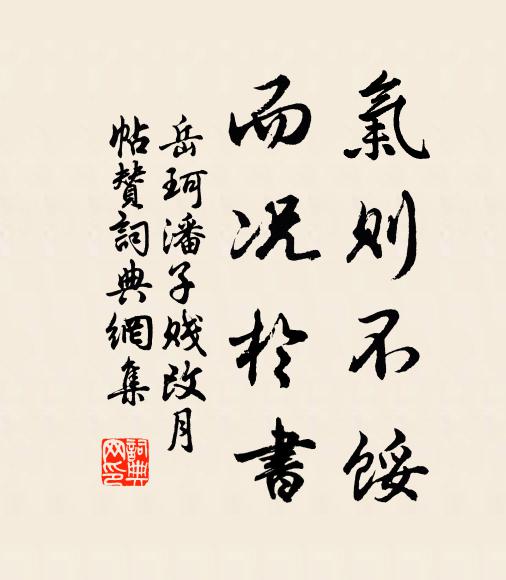 氣則不餒
而况於書
岳珂潘子賤改月
帖贊詞典網集
詞典
网印